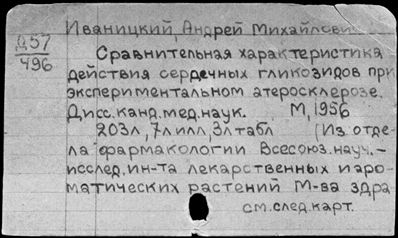 Иваницкий, Андрей Михайлович
Д57
496
Сравнительная характеристика
действия сердечных гликозидов при
экспериментальном атеросклерозе.
Дисс. канд. мед. наук. М, 1956
203л, 7л илл, 3л табл (Из отде-
ла фармакологии Всесоюз. науч.-
исслед. ин-та лекарственных и аро-
матических растений М-ва здра
см. след. карт.